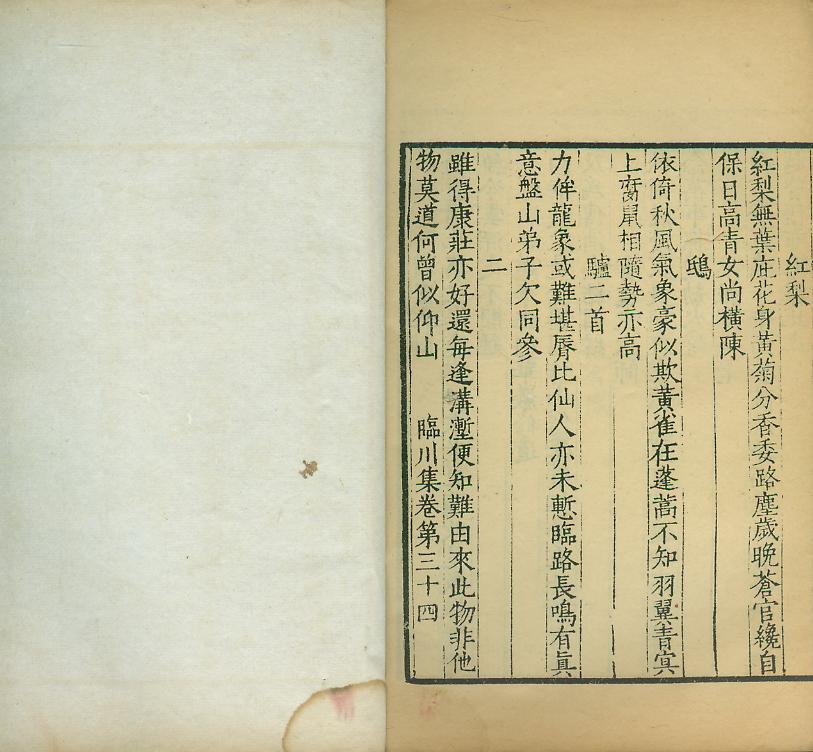 紅梨
紅梨無葉庇花身黃菊分香委路塵歲晚蒼官纔自
保日高青女尚橫陳
鴟
依倚秋風氣象豪似欺黃雀在蓬蒿不知羽翼青冥
上腐鼠相隨勢亦高
驢二首
力侔龍象或難堪脣比仙人亦未慙臨路長鳴有眞
意盤山弟子欠同參
二
雖得康莊亦好還每逢溝壍便知難由來此物非他
物莫道何曾似仰山 臨川集卷第三十四